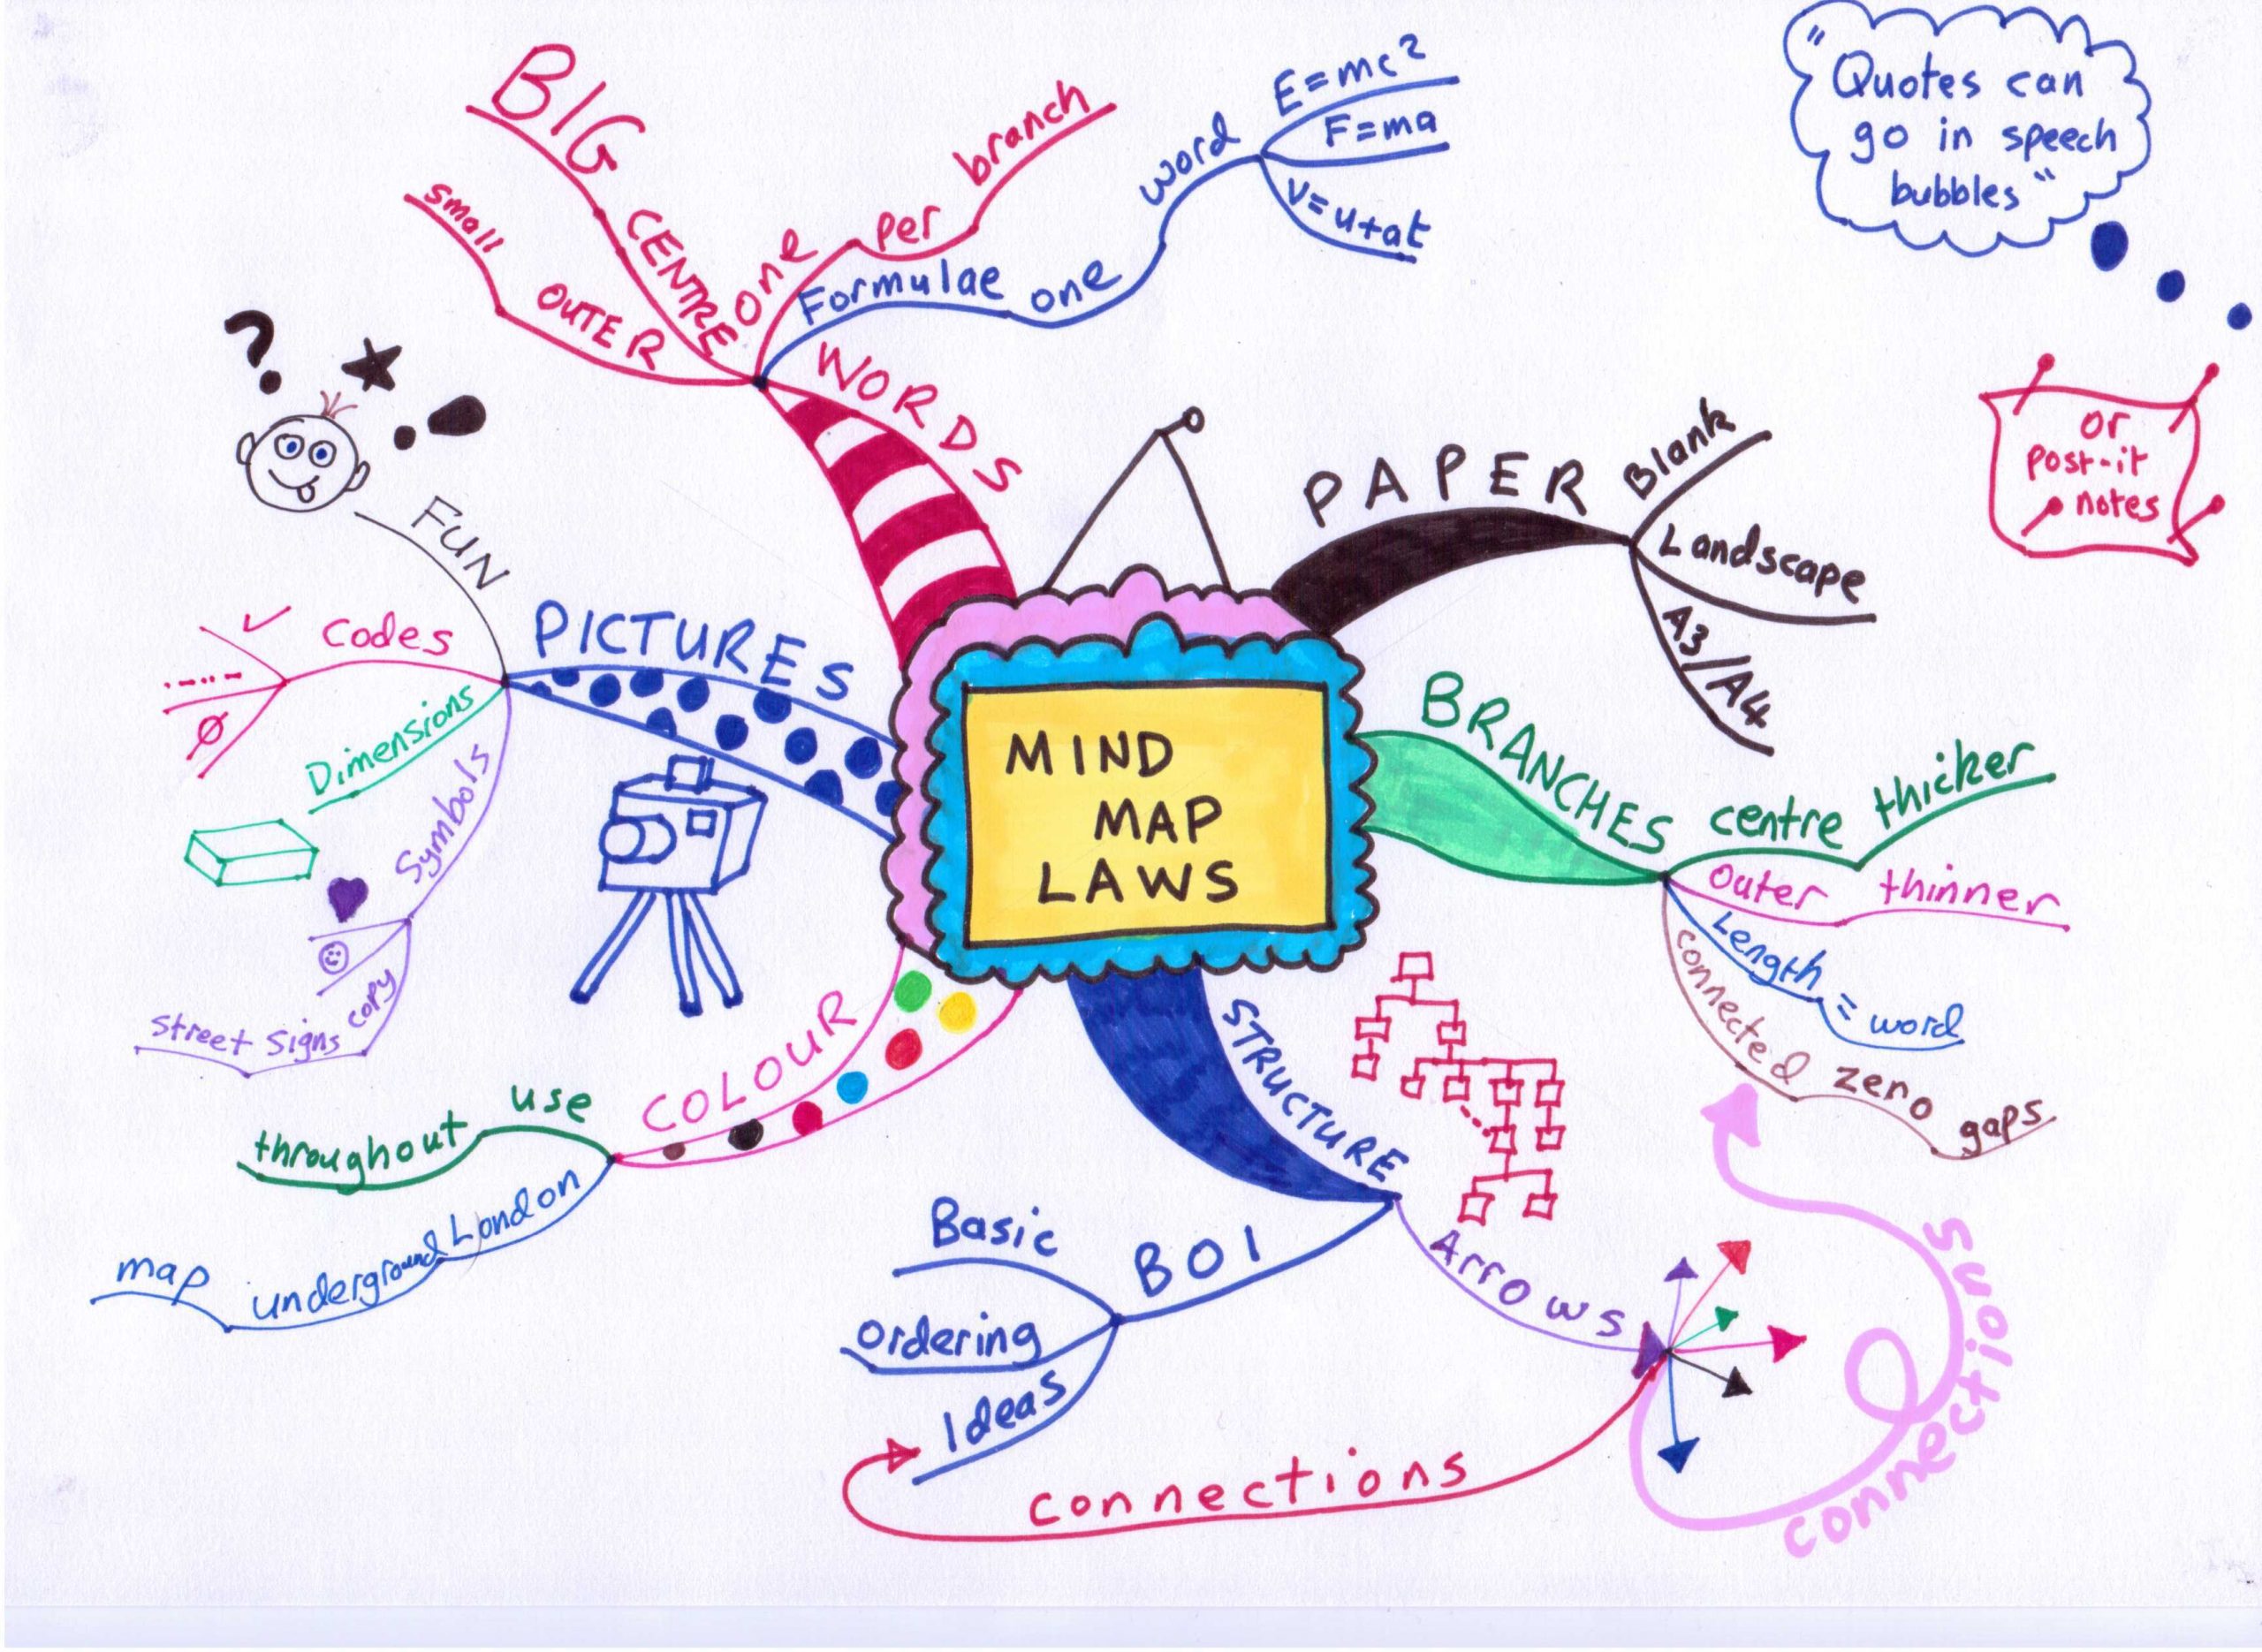 MIND
MAP
LAWS
WORDS
CENTRE
BIG
OUTER
small
one per branch
Formulae one word
E=mc²
F=ma
V=u+at
"Quotes can
go in speech
bubbles"
or
post-it
notes
PAPER
Blank
Landscape
A3/A4
BRANCHES
centre thicker
outer thinner
Length = word
connected zero gaps
STRUCTURE
Arrows
connections
connections
BOI
Basic
Ordering
Ideas
COLOUR
use
throughout
London
underground
map
PICTURES
FUN
? ★ !
Codes
Dimensions
Symbols
copy
street signs